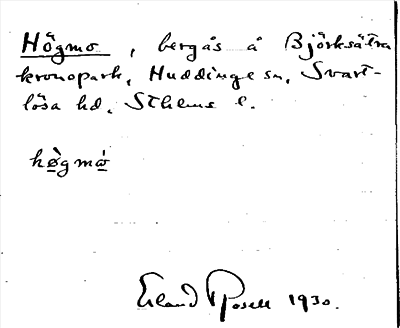 Högmo, bergås å Björksätra
kronopark, Huddinge sn, Svart-
lösa hd, Sthems l.
hø̀gmȯ
Erland Rosell 1930.